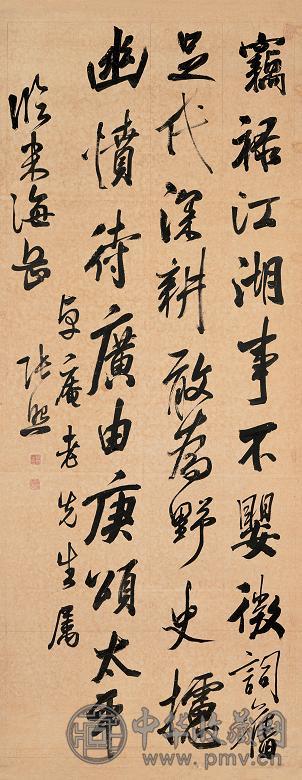 竊祿江湖事不嬰微詞
足代深耕敢為野史攄
幽憤待廣由庚頌太平
臨米海岳
卓庵老先生屬
張照
中华收藏网
www.pmv.cn